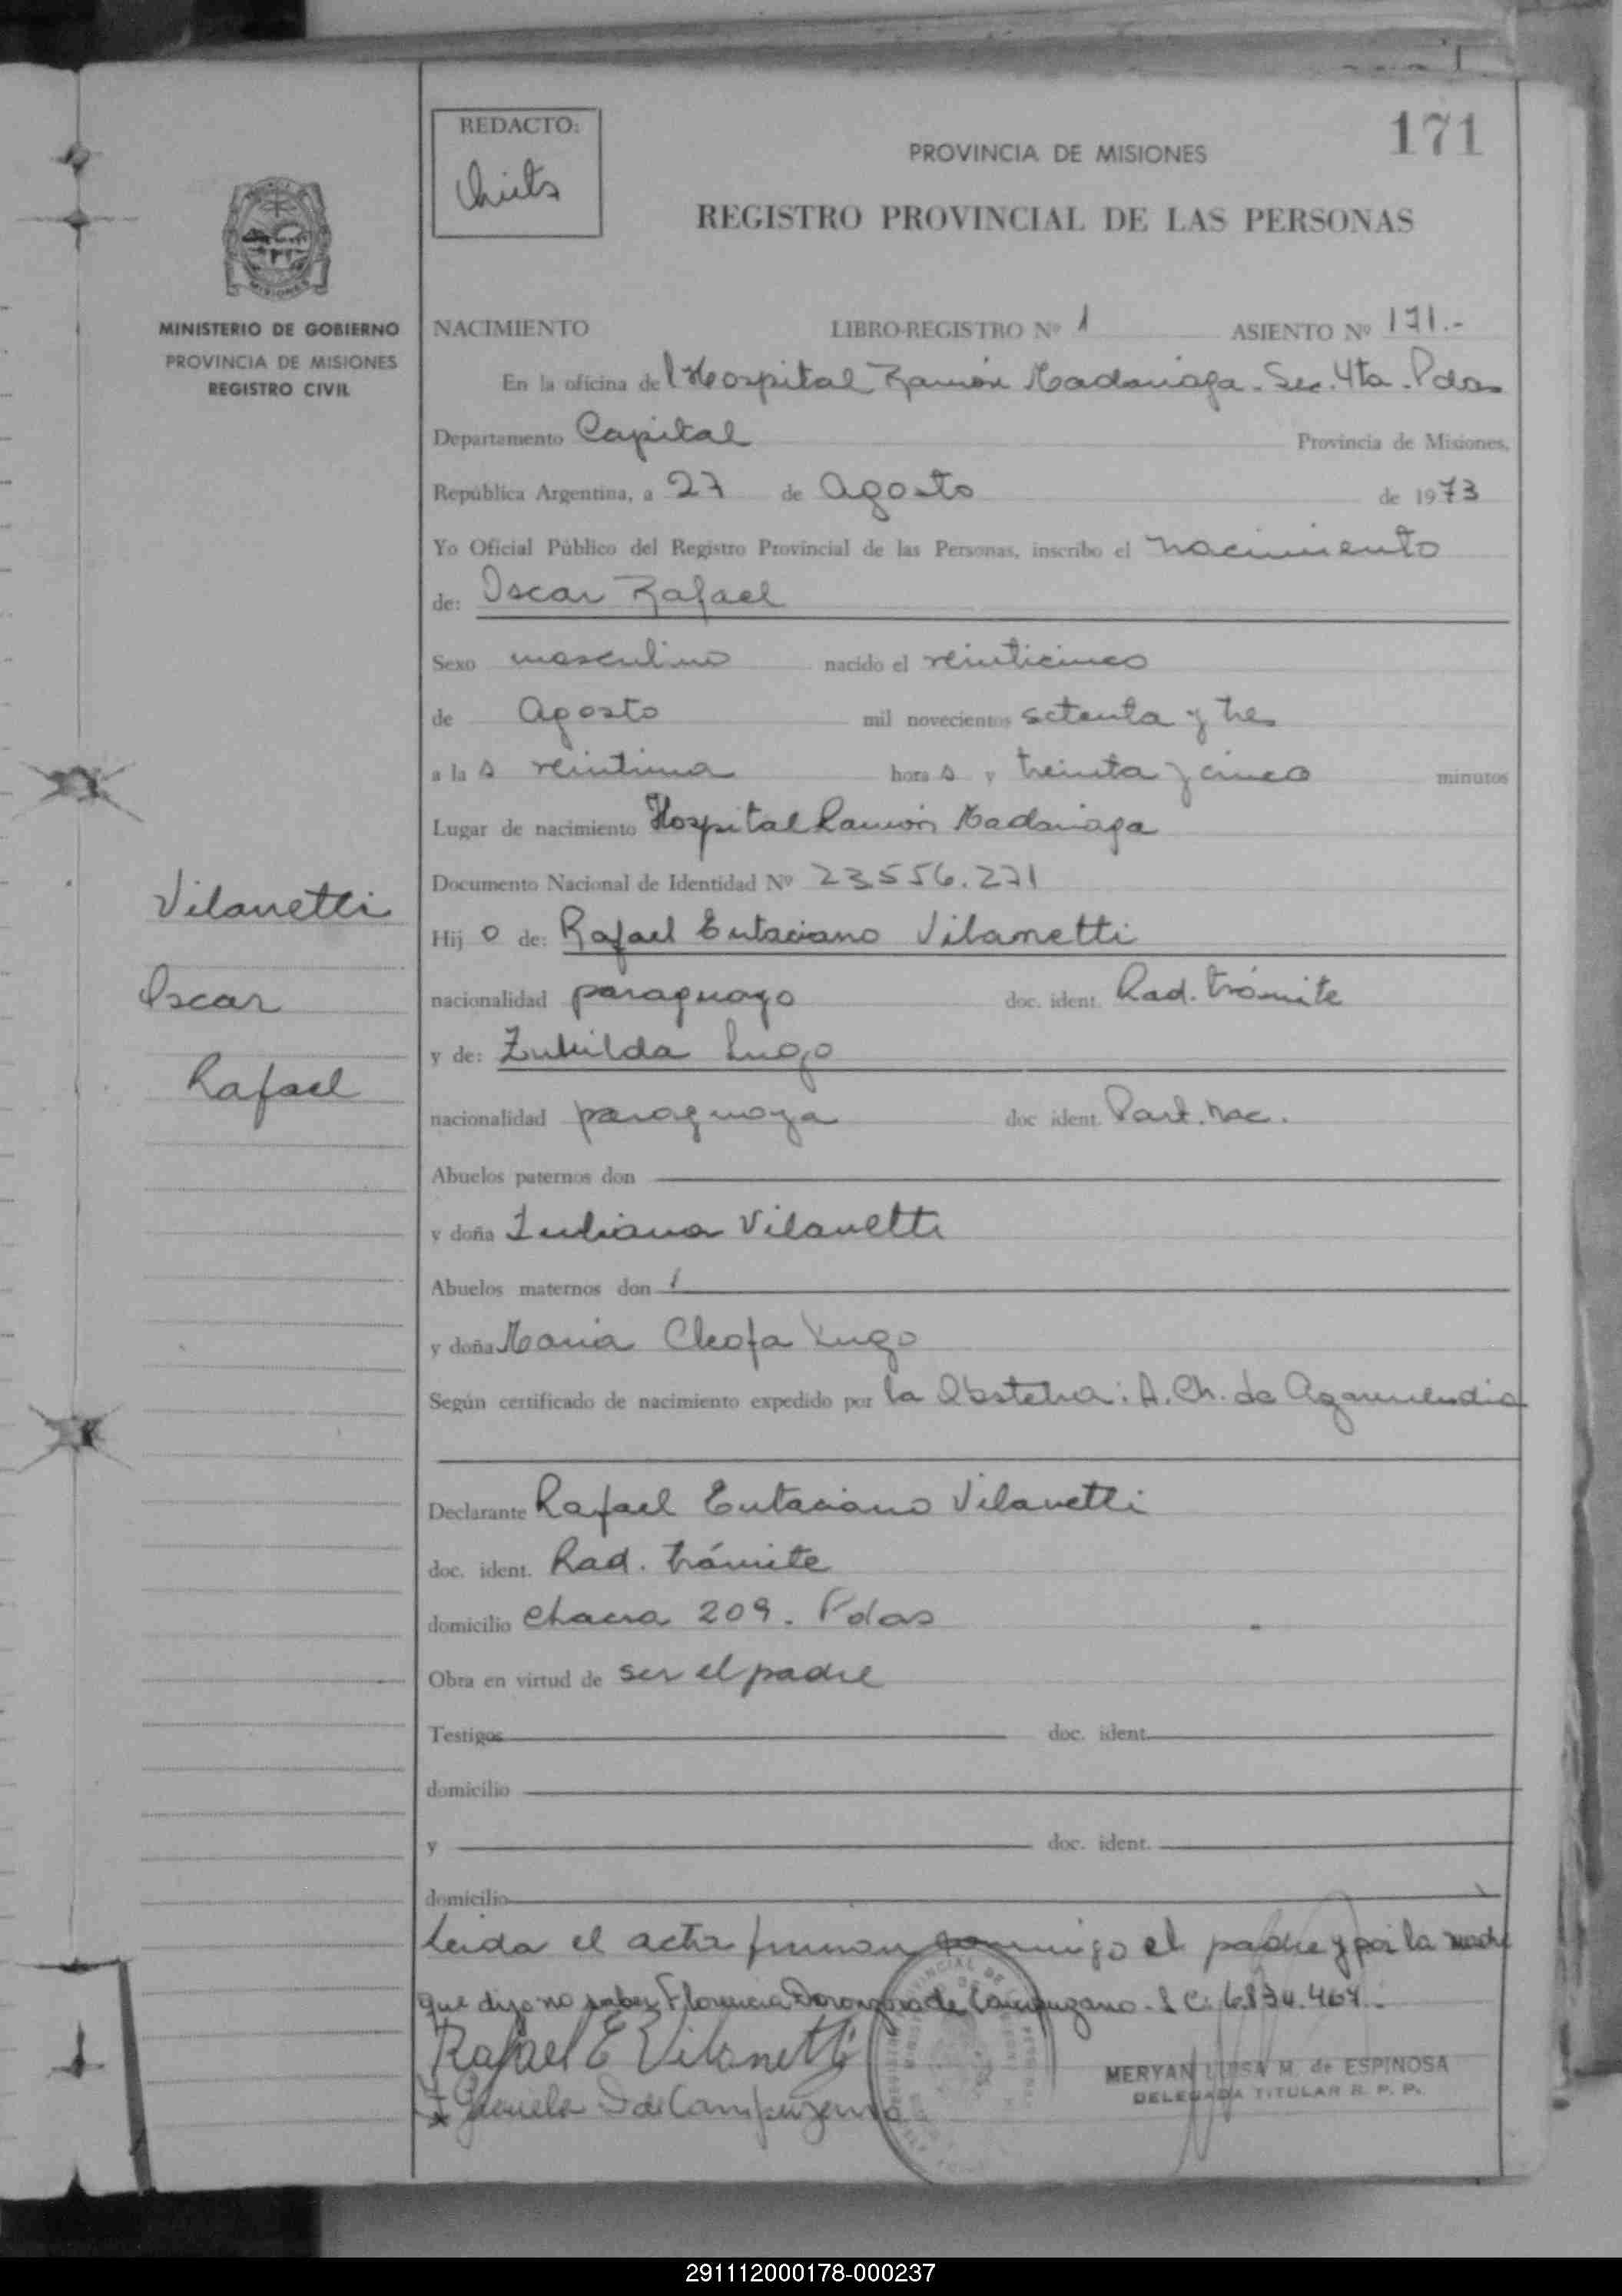 171
REDACTO:
PROVINCIA DE MISIONES
REGISTRO PROVINCIAL DE LAS PERSONAS
MISIONES
MINISTERIO DE GOBIERNO
PROVINCIA DE MISIONES
REGISTRO CIVIL
NACIMIENTO LIBRO-REGISTRO Nº 1 ASIENTO Nº 171.-
En la oficina del Hospital Ramón Madariaga. Sec. 4ta. Pdas
Departamento Capital Provincia de Misiones,
República Argentina, a 27 de Agosto de 1973
Yo Oficial Público del Registro Provincial de las Personas, inscribo el nacimiento
de: Oscar Rafael
Sexo masculino nacido el veinticinco
de Agosto mil novecientos setenta y tres
a las veintiuna horas y treinta y cinco minutos
Lugar de nacimiento Hospital Ramón Madariaga
Documento Nacional de Identidad Nº 23.556.271
Vilanetti
Oscar
Rafael
Hijo de: Rafael Eutaciano Vilanetti
nacionalidad paraguayo doc. ident. Rad. trámite
y de: Zunilda Lugo
nacionalidad paraguaya doc ident. Part. nac.
Abuelos paternos don
y doña Juliana Vilanetti
Abuelos maternos don
y doña Maria Cleofa Lugo
Según certificado de nacimiento expedido por la Obstetra: A. Ch. de Agarmendia
Declarante Rafael Eutaciano Vilanetti
doc. ident. Rad. trámite
domicilio Chacra 209. Pdas
Obra en virtud de ser el padre
Testigos doc. ident.
domicilio
y doc. ident.
domicilio
Leida el acta firman conmigo el padre y por la madre
que dijo no saber, Florencia de Campuzano. L.C. 6.834.464.
Rafael E Vilanetti
D de Campuzano
MERYAN LUISA M. de ESPINOSA
DELEGADA TITULAR R. P. P.
291112000178-000237